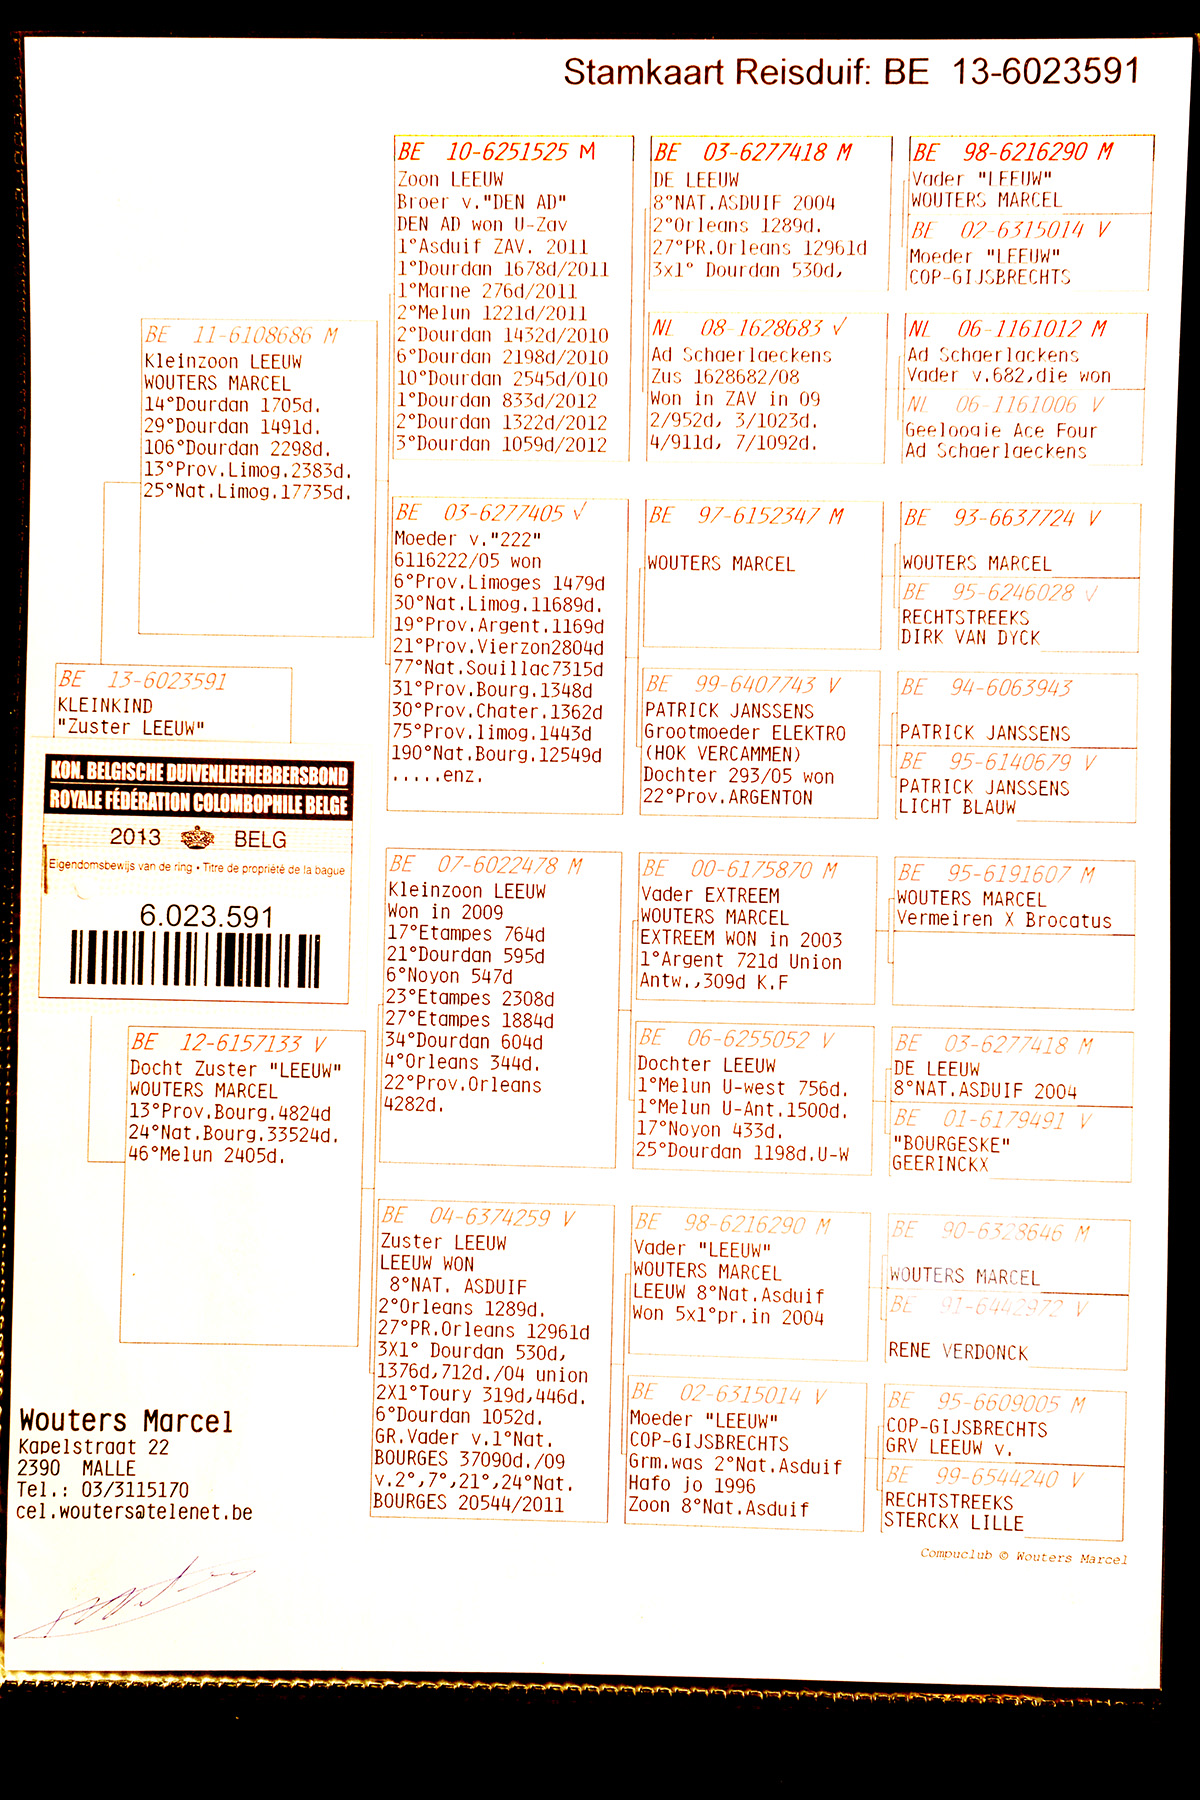 Stamkaart Reisduif: BE 13-6023591
BE 13-6023591
KLEINKIND
"Zuster LEEUW"
KON. BELGISCHE DUIVENLIEFHEBBERSBOND
ROYALE FÉDÉRATION COLOMBOPHILE BELGE
2013 BELG
Eigendomsbewijs van de ring • Titre de propriété de la bague
6.023.591
BE 11-6108686 M
Kleinzoon LEEUW
WOUTERS MARCEL
14°Dourdan 1705d.
29°Dourdan 1491d.
106°Dourdan 2298d.
13°Prov.Limog.2383d.
25°Nat.Limog.17735d.
BE 12-6157133 V
Docht Zuster "LEEUW"
WOUTERS MARCEL
13°Prov.Bourg.4824d
24°Nat.Bourg.33524d.
46°Melun 2405d.
BE 10-6251525 M
Zoon LEEUW
Broer v."DEN AD"
DEN AD won U-Zav
1°Asduif ZAV. 2011
1°Dourdan 1678d/2011
1°Marne 276d/2011
2°Melun 1221d/2011
2°Dourdan 1432d/2010
6°Dourdan 2198d/2010
10°Dourdan 2545d/010
1°Dourdan 833d/2012
2°Dourdan 1322d/2012
3°Dourdan 1059d/2012
BE 03-6277405 V
Moeder v."222"
6116222/05 won
6°Prov.Limoges 1479d
30°Nat.Limog.11689d.
19°Prov.Argent.1169d
21°Prov.Vierzon2804d
77°Nat.Souillac7315d
31°Prov.Bourg.1348d
30°Prov.Chater.1362d
75°Prov.limog.1443d
190°Nat.Bourg.12549d
.....enz.
BE 07-6022478 M
Kleinzoon LEEUW
Won in 2009
17°Etampes 764d
21°Dourdan 595d
6°Noyon 547d
23°Etampes 2308d
27°Etampes 1884d
34°Dourdan 604d
4°Orleans 344d.
22°Prov.Orleans
4282d.
BE 04-6374259 V
Zuster LEEUW
LEEUW WON
8°NAT. ASDUIF
2°Orleans 1289d.
27°PR.Orleans 12961d
3X1° Dourdan 530d,
1376d,712d./04 union
2X1°Toury 319d,446d.
6°Dourdan 1052d.
GR.Vader v.1°Nat.
BOURGES 37090d./09
v.2°,7°,21°,24°Nat.
BOURGES 20544/2011
BE 03-6277418 M
DE LEEUW
8°NAT.ASDUIF 2004
2°Orleans 1289d.
27°PR.Orleans 12961d
3x1° Dourdan 530d,
NL 08-1628683 V
Ad Schaerlaeckens
Zus 1628682/08
Won in ZAV in 09
2/952d, 3/1023d.
4/911d, 7/1092d.
BE 97-6152347 M
WOUTERS MARCEL
BE 99-6407743 V
PATRICK JANSSENS
Grootmoeder ELEKTRO
(HOK VERCAMMEN)
Dochter 293/05 won
22°Prov.ARGENTON
BE 00-6175870 M
Vader EXTREEM
WOUTERS MARCEL
EXTREEM WON in 2003
1°Argent 721d Union
Antw.,309d K.F
BE 06-6255052 V
Dochter LEEUW
1°Melun U-west 756d.
1°Melun U-Ant.1500d.
17°Noyon 433d.
25°Dourdan 1198d.U-W
BE 98-6216290 M
Vader "LEEUW"
WOUTERS MARCEL
LEEUW 8°Nat.Asduif
Won 5x1°pr.in 2004
BE 02-6315014 V
Moeder "LEEUW"
COP-GIJSBRECHTS
Grm.was 2°Nat.Asduif
Hafo jo 1996
Zoon 8°Nat.Asduif
BE 98-6216290 M
Vader "LEEUW"
WOUTERS MARCEL
BE 02-6315014 V
Moeder "LEEUW"
COP-GIJSBRECHTS
NL 06-1161012 M
Ad Schaerlackens
Vader v.682,die won
NL 06-1161006 V
Geeloogje Ace Four
Ad Schaerlaeckens
BE 93-6637724 V
WOUTERS MARCEL
BE 95-6246028 V
RECHTSTREEKS
DIRK VAN DYCK
BE 94-6063943
PATRICK JANSSENS
BE 95-6140679 V
PATRICK JANSSENS
LICHT BLAUW
BE 95-6191607 M
WOUTERS MARCEL
Vermeiren X Brocatus
BE 03-6277418 M
DE LEEUW
8°NAT.ASDUIF 2004
BE 01-6179491 V
"BOURGESKE"
GEERINCKX
BE 90-6328646 M
WOUTERS MARCEL
BE 91-6442972 V
RENE VERDONCK
BE 95-6609005 M
COP-GIJSBRECHTS
GRV LEEUW v.
BE 99-6544240 V
RECHTSTREEKS
STERCKX LILLE
Wouters Marcel
Kapelstraat 22
2390 MALLE
Tel.: 03/3115170
cel.wouters@telenet.be
Compuclub © Wouters Marcel